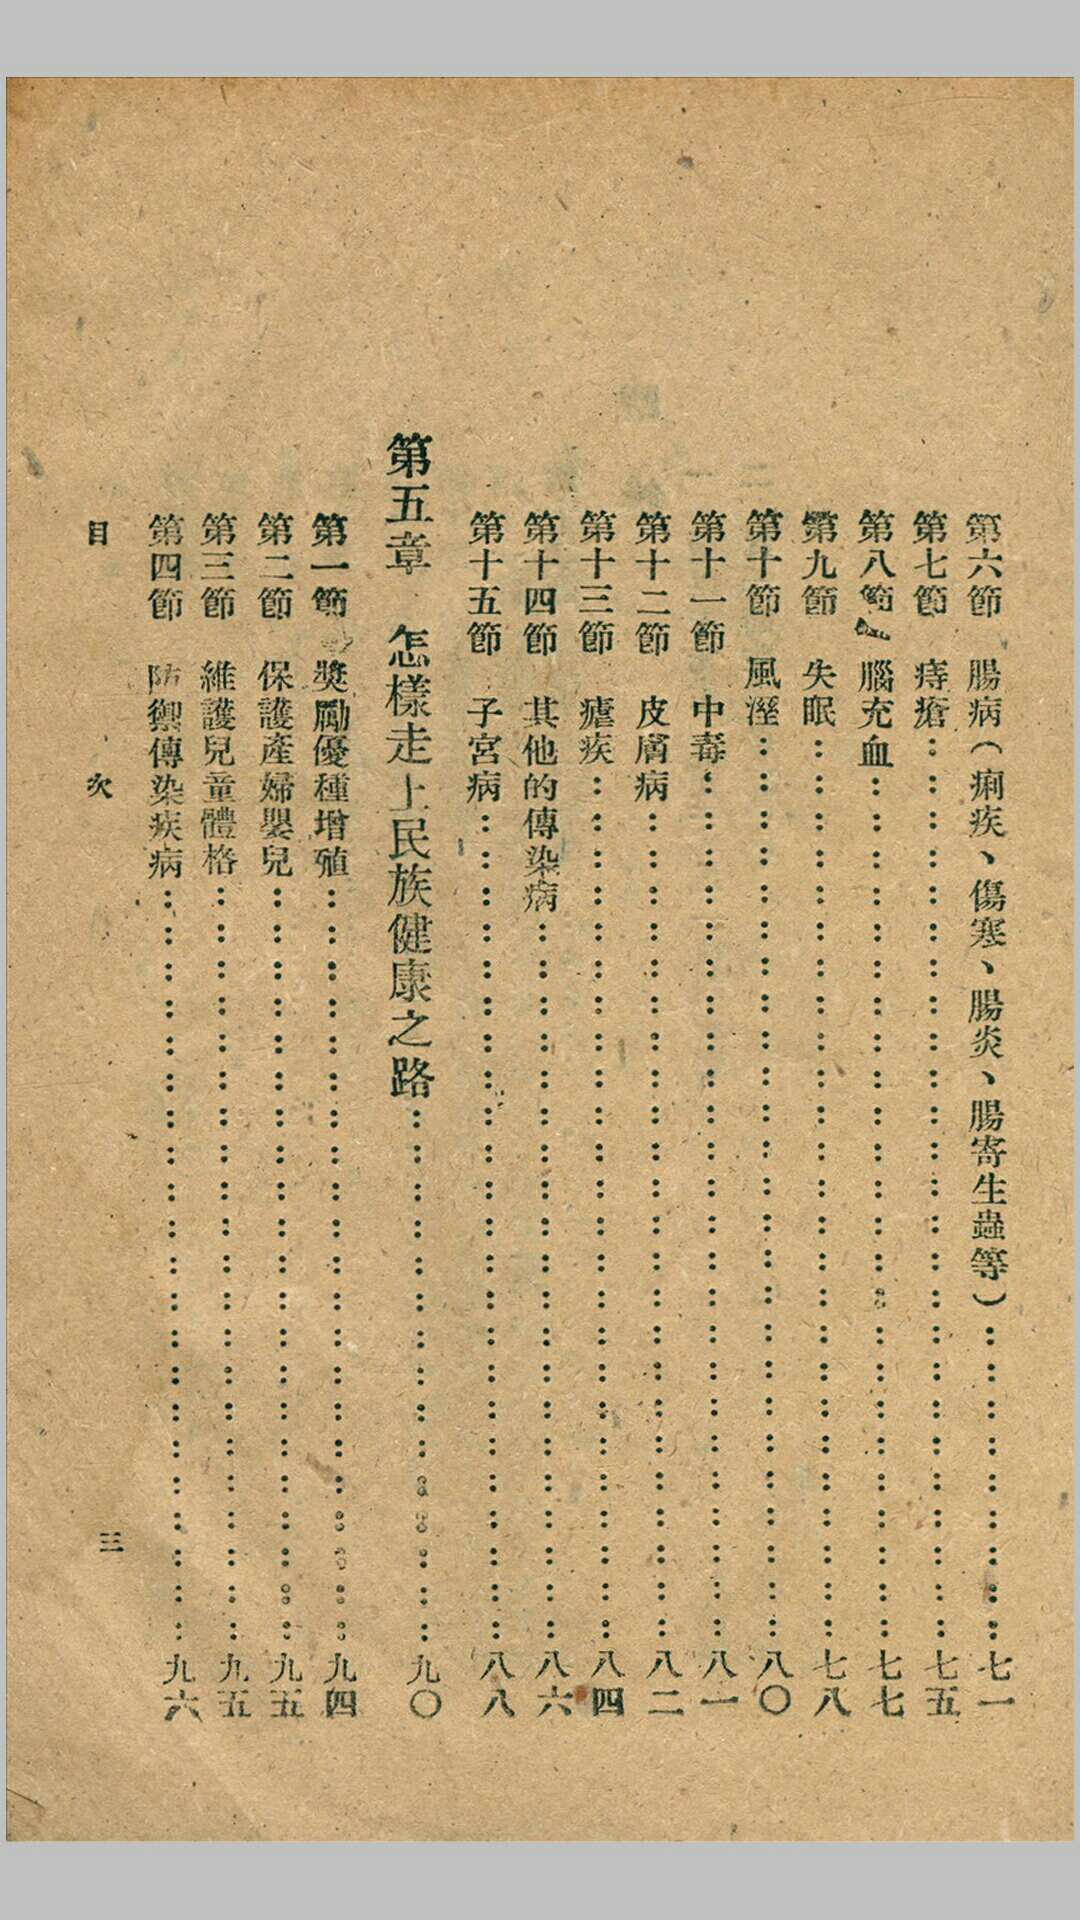 第六節　腸病（痢疾、傷寒、腸炎、腸寄生蟲等）……七一
第七節　痔瘡……七五
第八節　腦充血……七七
第九節　失眠……七八
第十節　風溼……八〇
第十一節　中毒……八一
第十二節　皮膚病……八二
第十三節　瘧疾……八四
第十四節　其他的傳染病……八六
第十五節　子宮病……八八
第五章　怎樣走上民族健康之路……九〇
第一節　獎勵優種增殖……九四
第二節　保護產婦嬰兒……九五
第三節　維護兒童體格……九五
第四節　防禦傳染疾病……九六
目　次　三